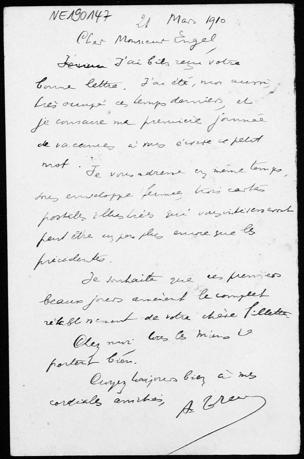 NE190147
21 Mars 1910
Cher Monsieur Engel
J'ai bien reçu votre
bonne lettre. J'ai été, moi aussi,
très occupé ces temps derniers, et
je consacre ma première journée
de vacances à vous écrire ce petit
mot.
Je vous adresse en même temps,
sous enveloppe fermée, trois cartes
postales illustrées qui vous intéresseront
peut être un peu plus encore que les
précédentes.
Je souhaite que ces premiers
beaux jours amènent le complet
rétablissement de votre chère fillette.
Chez moi tous les miens se
portent bien.
Croyez toujours bien à mes
cordiales amitiés,
A.